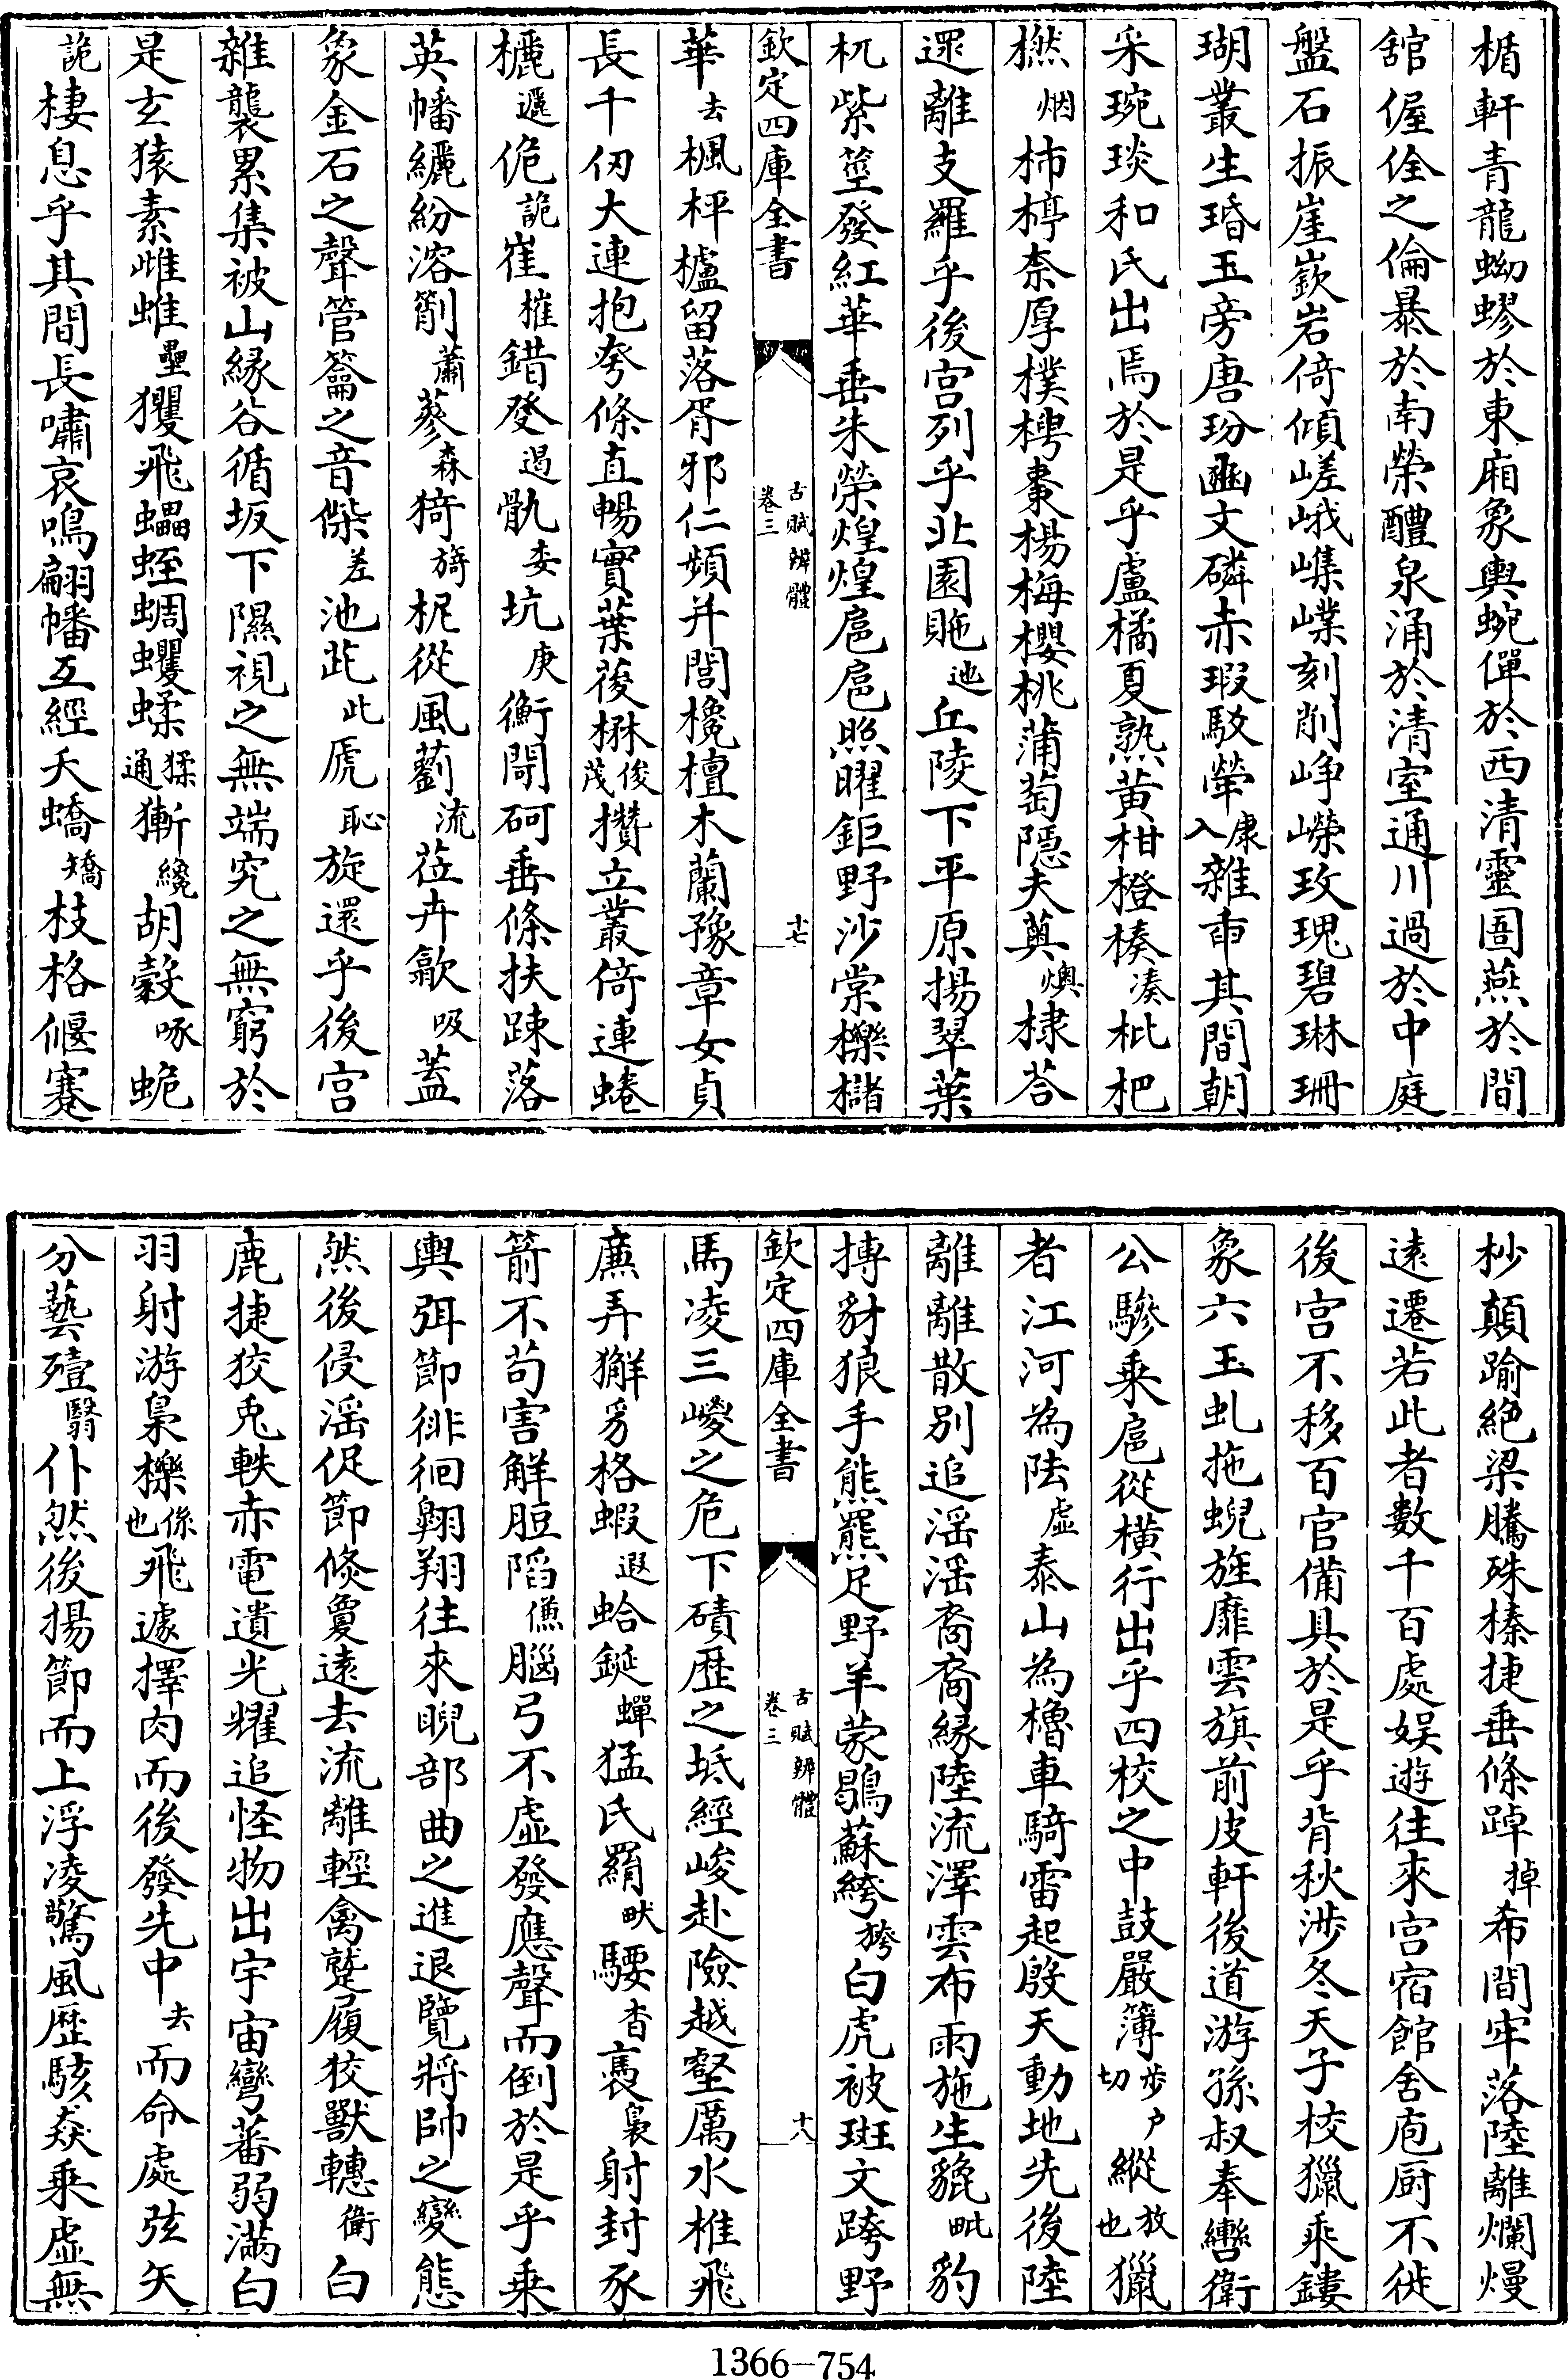 楯軒青龍蚴蟉於東廂象輿蜿僤於西清靈圄燕於間
舘偓佺之倫暴於南榮醴泉涌於清室通川過於中庭
盤石振崖嶔岩倚傾嵯峨㠍嶪刻削崢嶸玫瑰碧琳珊
瑚叢生㻉玉旁唐玢豳文磷赤瑕駁犖康入雜臿其間朝
采琬琰和氏出焉於是乎盧橘夏熟黄柑橙楱湊枇杷
橪烟柿楟柰厚樸梬棗楊梅櫻桃蒲萄隱夫薁燠棣荅
遝離支羅乎後宫列乎北園貤迆丘陵下平原揚翠葉
杌紫莖發紅華垂朱榮煌煌扈扈照曜鉅野沙棠櫟櫧
欽定四庫全書 古賦辨體 卷三 十七
華去楓枰櫨留落胥邪仁頻并閭欃檀木蘭豫章女貞
長千仞大連抱夸條直暢實葉葰楙俊茂攢立叢倚連蜷
欐邐佹詭崔摧錯癹過骫委坑庚衡閜砢垂條扶疎落
英幡纚紛溶箾蕭蔘森猗旖柅從風藰流莅卉歙吸蓋
象金石之聲管籥之音傑差池茈此虒恥旋還乎後宫
雜襲累集被山緣谷循坂下隰視之無端究之無窮於
是玄猿素雌蜼壘玃飛蠝蛭蜩蠼蝚猱通獑纔胡豰啄蛫
詭棲息乎其間長嘯哀鳴翩幡互經夭蟜矯枝格偃蹇
杪顛踰絶梁騰殊榛捷垂條踔掉希間牢落陸離爛熳
遠遷若此者數千百處娱遊往來宫宿館舍庖厨不徙
後宫不移百官備具於是乎背秋涉冬天子校獵乘鏤
象六玉虬拖蜺旌靡雲旗前皮軒後道游孫叔奉轡衛
公驂乘扈從横行出乎四校之中鼓嚴簿步户切縱放也獵
者江河為阹虚泰山為櫓車騎雷起殷天動地先後陸
離離散别追淫淫裔裔緣陸流澤雲布雨施生貔毗豹
搏豺狼手熊羆足野羊蒙鶡蘇絝袴白虎被斑文跨野
欽定四庫全書 古賦辨體 卷三 十八
馬凌三嵏之危下磧歴之坻經峻赴險越壑厲水椎飛
廉弄獬豸格蝦遐蛤鋋蟬猛氏羂畎騕杳褭裊射封豕
箭不苟害解脰陷䐡腦弓不虚發應聲而倒於是乎乘
輿弭節徘徊翱翔往來睨部曲之進退覽將帥之變態
然後侵淫促節倐夐遠去流離輕禽蹵履狡獸轊衛白
鹿捷狡兎軼赤電遺光耀追怪物出宇宙彎蕃弱滿白
羽射游梟櫟係也飛遽擇肉而後發先中去而命處弦矢
分藝殪翳仆然後揚節而上浮凌驚風歴駭猋乘虚無
1366—754